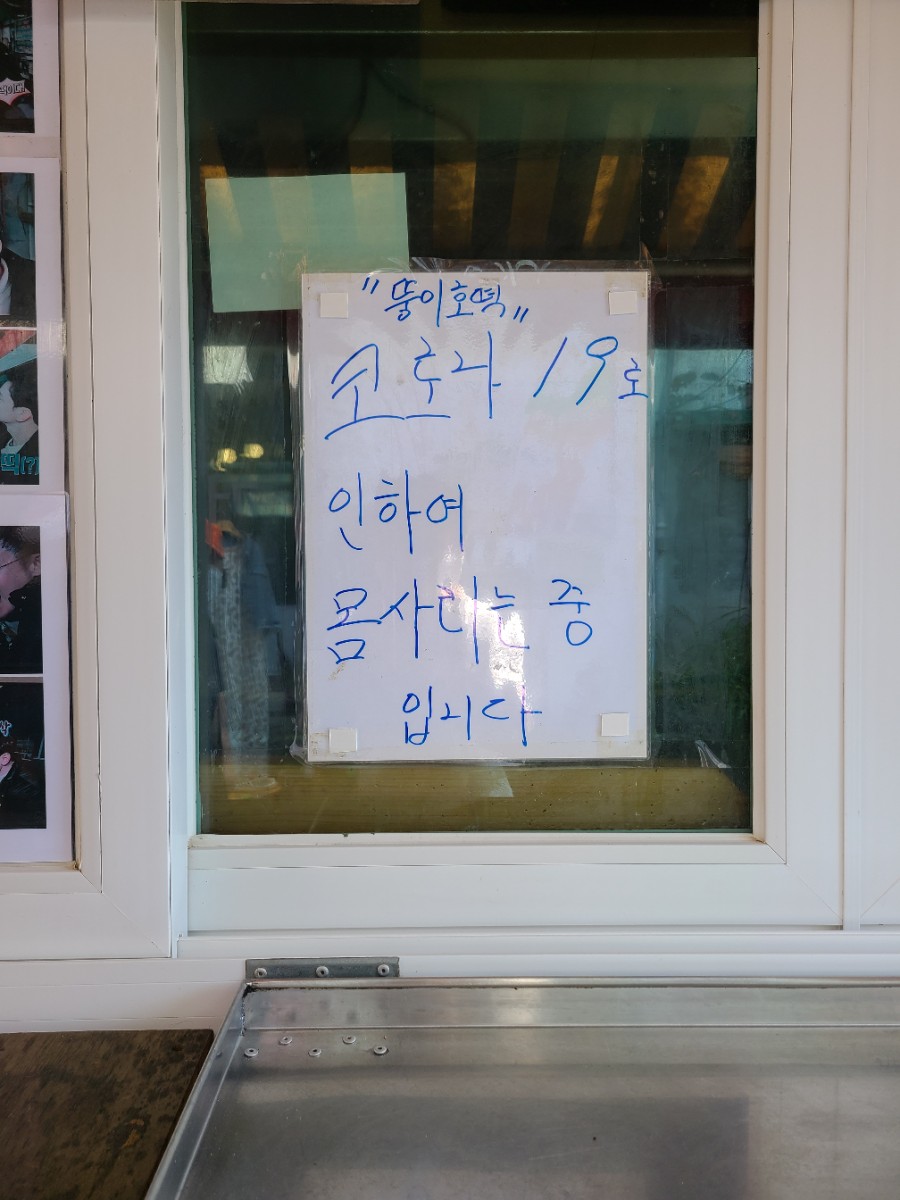 "뚱이호떡"
코로나 19로
인하여
몸사리는 중
입니다